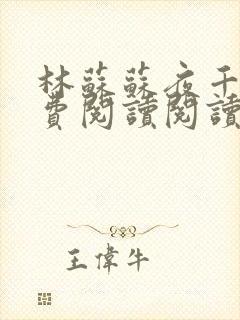 林蘇蘇夜千
費閱讀閱讀
王偉牛